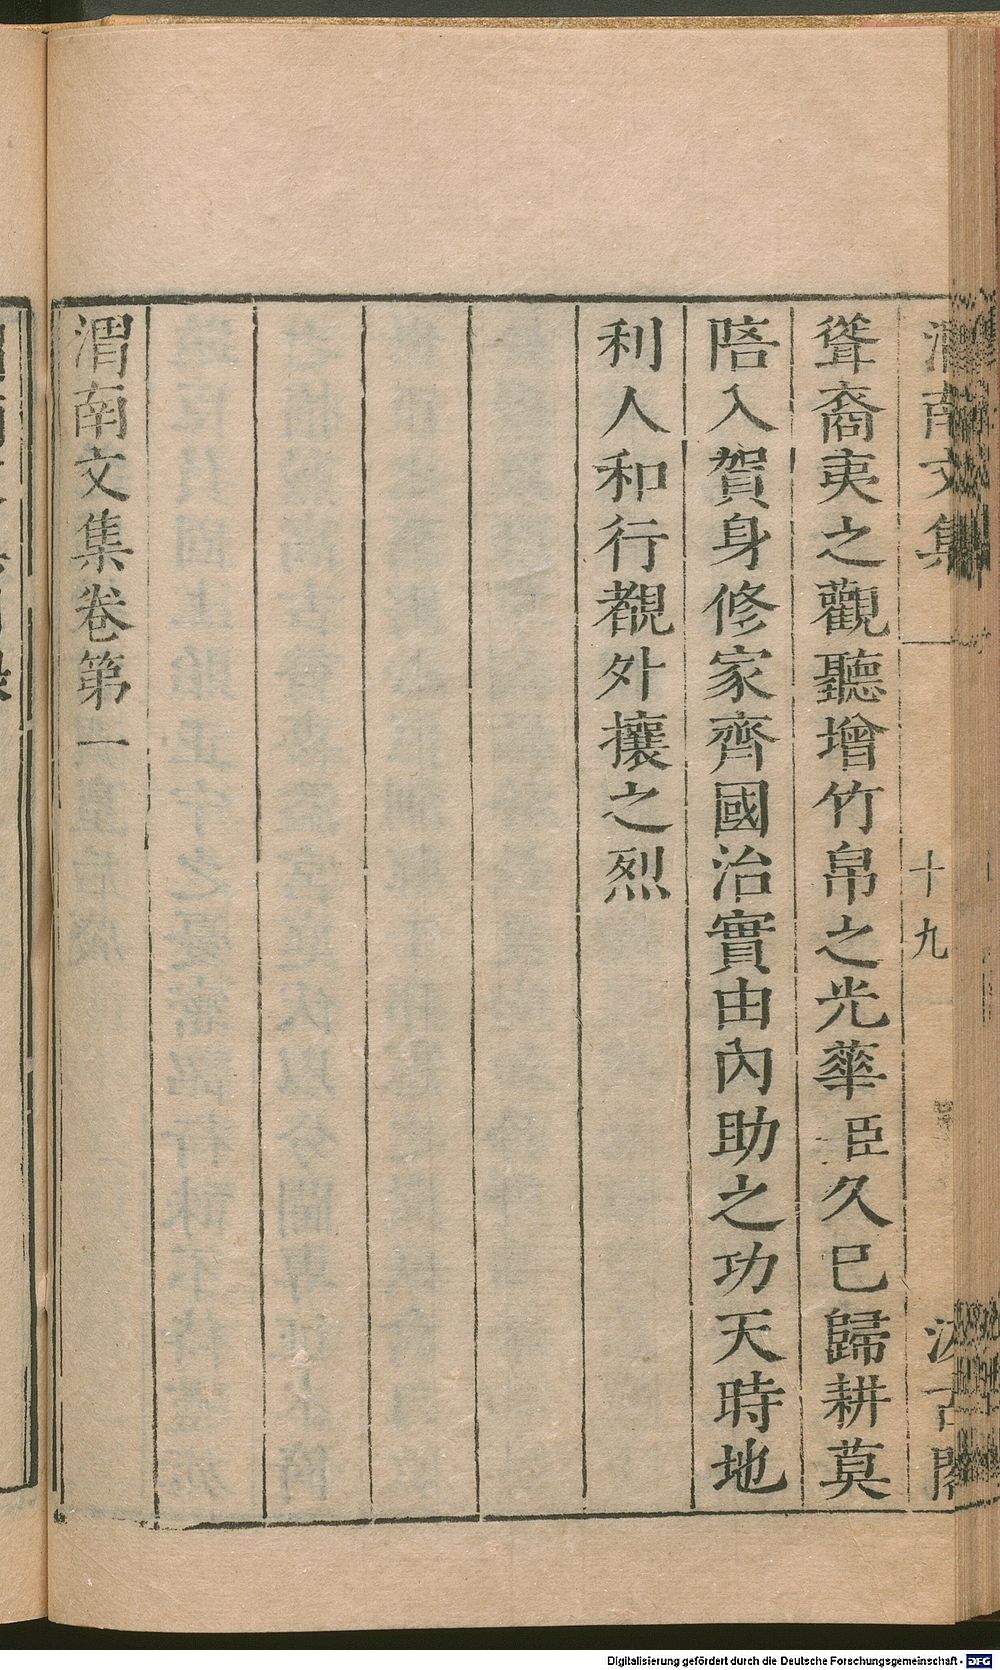 渭南文集 十九 汲古閣
聳裔夷之觀聽增竹帛之光華臣久已歸耕莫
陪入賀身修家齊國治實由內助之功天時地
利人和行覩外攘之烈
渭南文集卷第一
Digitalisierung gefördert durch die Deutsche Forschungsgemeinschaft - DFG